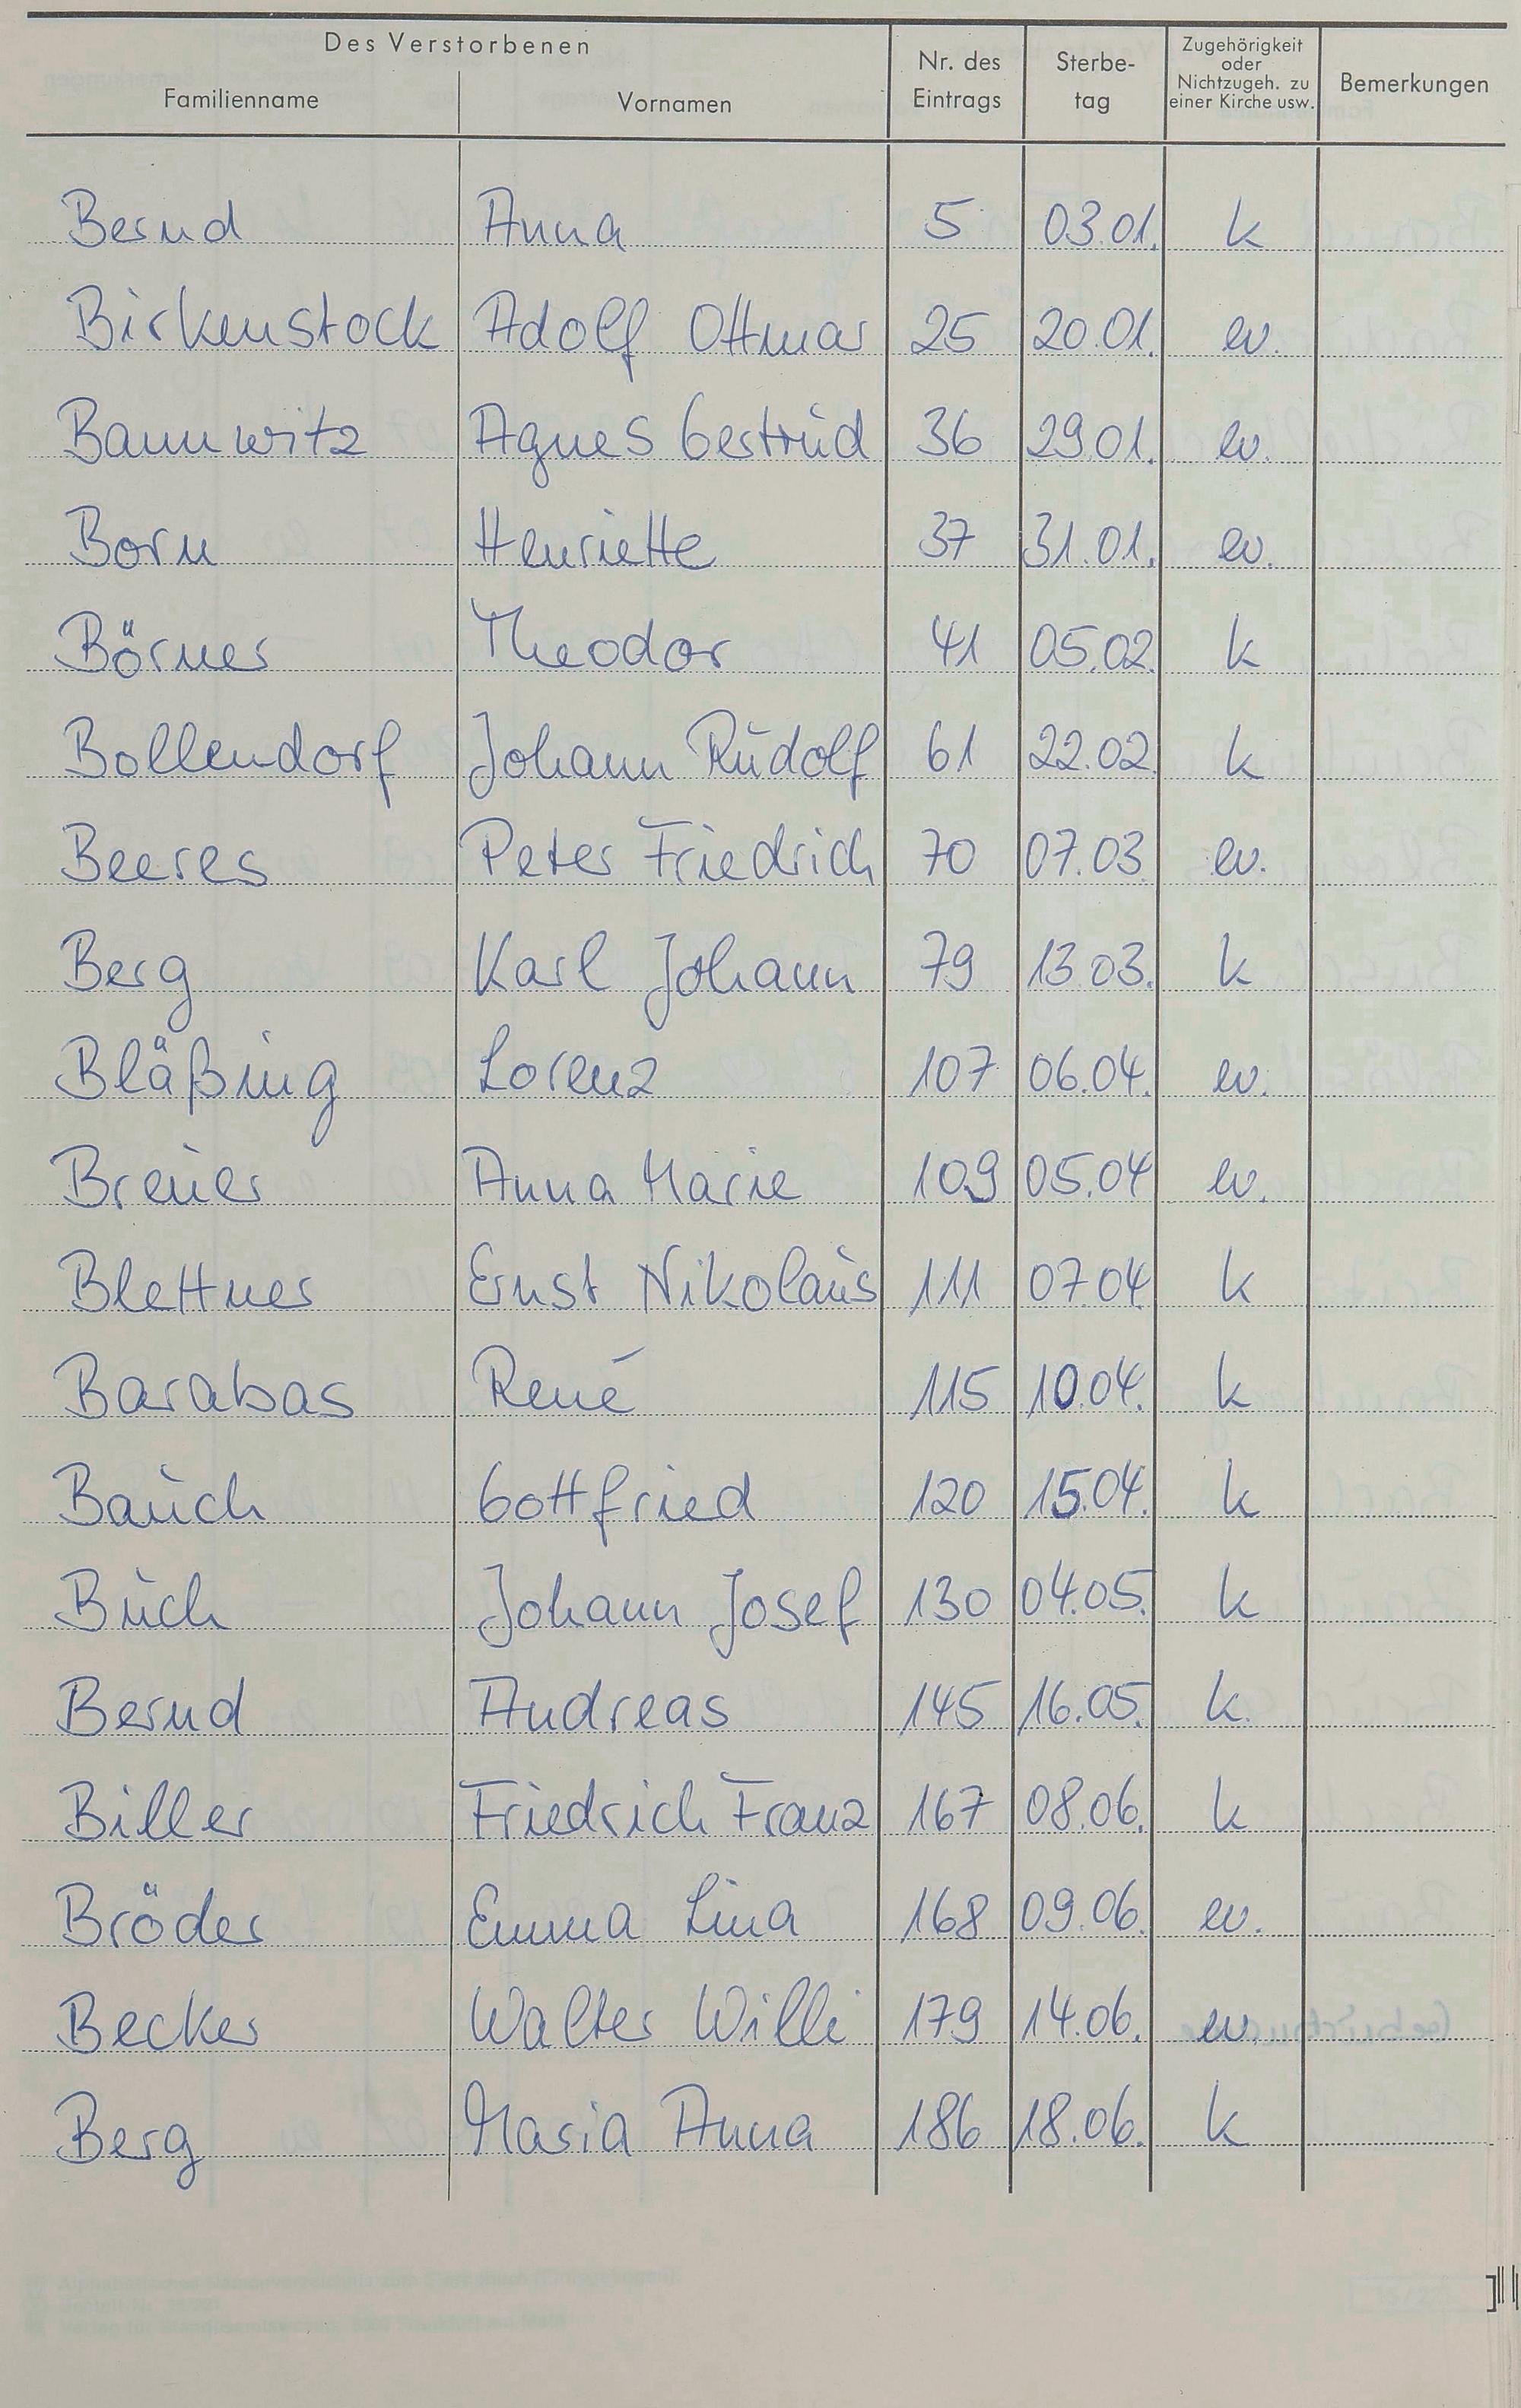 Des Verstorbenen
Familienname Vornamen Nr. des Eintrags Sterbe-tag Zugehörigkeit oder Nichtzugeh. zu einer Kirche usw. Bemerkungen
Bernd Anna 5 03.01. k
Birkenstock Adolf Ottmar 25 20.01. ev.
Bannwitz Agnes Gertrud 36 29.01. ev.
Born Henriette 37 31.01. ev.
Börner Theodor 41 05.02. k
Bollendorf Johann Rudolf 61 22.02. k
Beeres Peter Friedrich 70 07.03. ev.
Berg Karl Johann 79 13.03. k
Bläßing Lorenz 107 06.04. ev.
Breuer Anna Marie 109 05.04 ev.
Blettner Ernst Nikolaus 111 07.04 k
Barabas René 115 10.04. k
Bauch Gottfried 120 15.04. k
Buch Johann Josef 130 04.05. k
Bernd Andreas 145 16.05. k.
Biller Friedrich Franz 167 08.06. k
Bröder Emma Lina 168 09.06. ev.
Becker Walter Willi 179 14.06. ev.
Berg Maria Anna 186 18.06. k